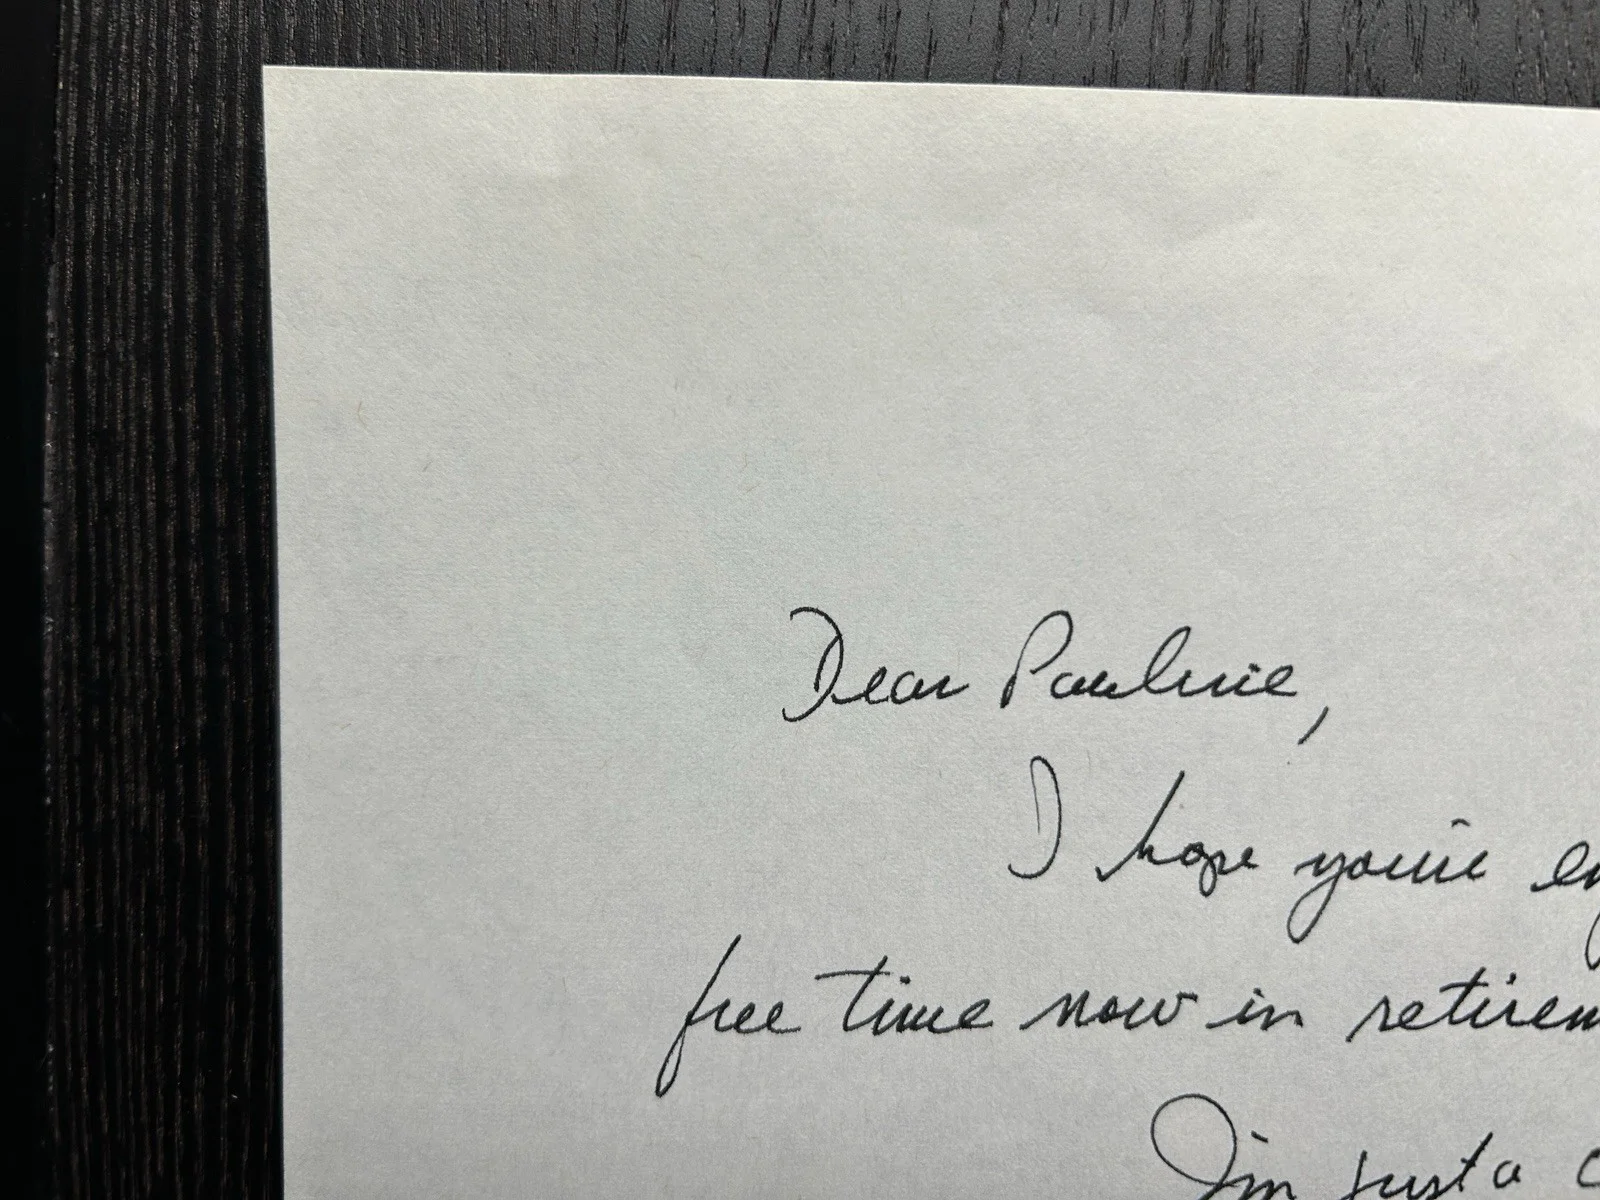 Dear Pauline,
I hope you're en
free time now in retirem
I'm just a